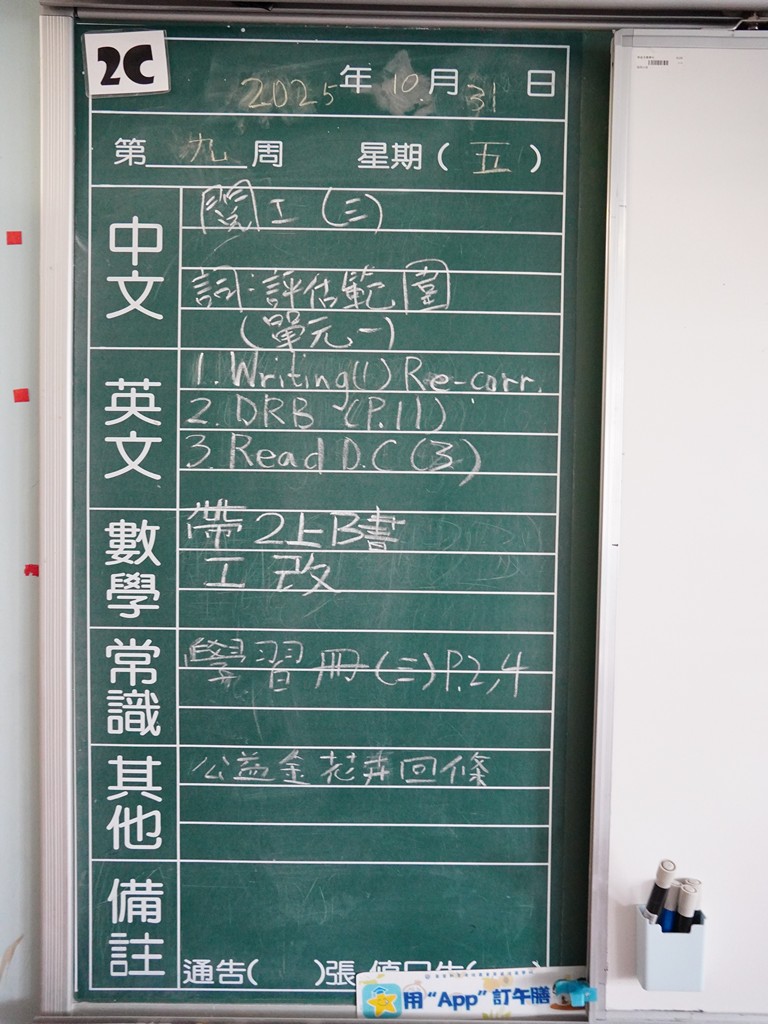 2C
2025年10月31日
第九周 星期(五)
中文
閱工(三)
詞:評估範圍
(單元一)
英文
1. Writing(1) Re-corr.
2. DRB (P.11)
3. Read D.C (3)
數學
帶2上B書
工改
常識
學習冊(二)P.2,4
其他
公益金花卉回條
備註
通告( )張
用“App”訂午膳